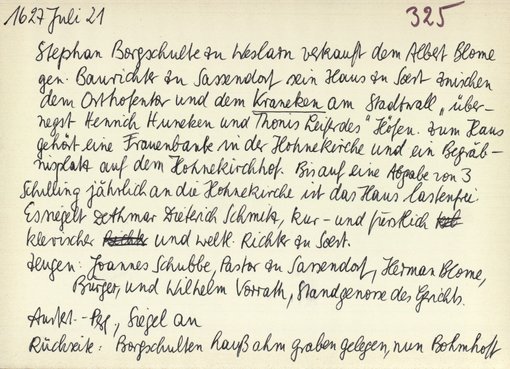 1627 Juli 21
325
Stephan Borgschulte zu Weslarn verkauft dem Albert Blome
gen. Baurichter zu Sassendorf sein Haus zu Soest zwischen
dem Osthofentor und dem Kraneken am Stadtwall "über-
negst Henrich Huneken und Thonis Leiferdes" Höfen. Zum Haus
gehört eine Frauenbank in der Hohnekirche und ein Begräb-
nisplatz auf dem Hohnekirchhof. Bis auf eine Abgabe von 3
Schilling jährlich an die Hohnekirche ist das Haus lastenfrei.
Es siegelt Dethmar Dieterich Schmitz, kur- und fürstlich
klevischer und weltl. Richter zu Soest.
Zeugen: Joannes Schubbe, Pastor zu Sassendorf, Herman Blome,
Bürger, und Wilhelm Vorrath, Standgenosse des Gerichts.
Ausf.-Pgt, Siegel an
Rückseite: Borgschulten hauß ahm graben gelegen, nun Bohmhoff